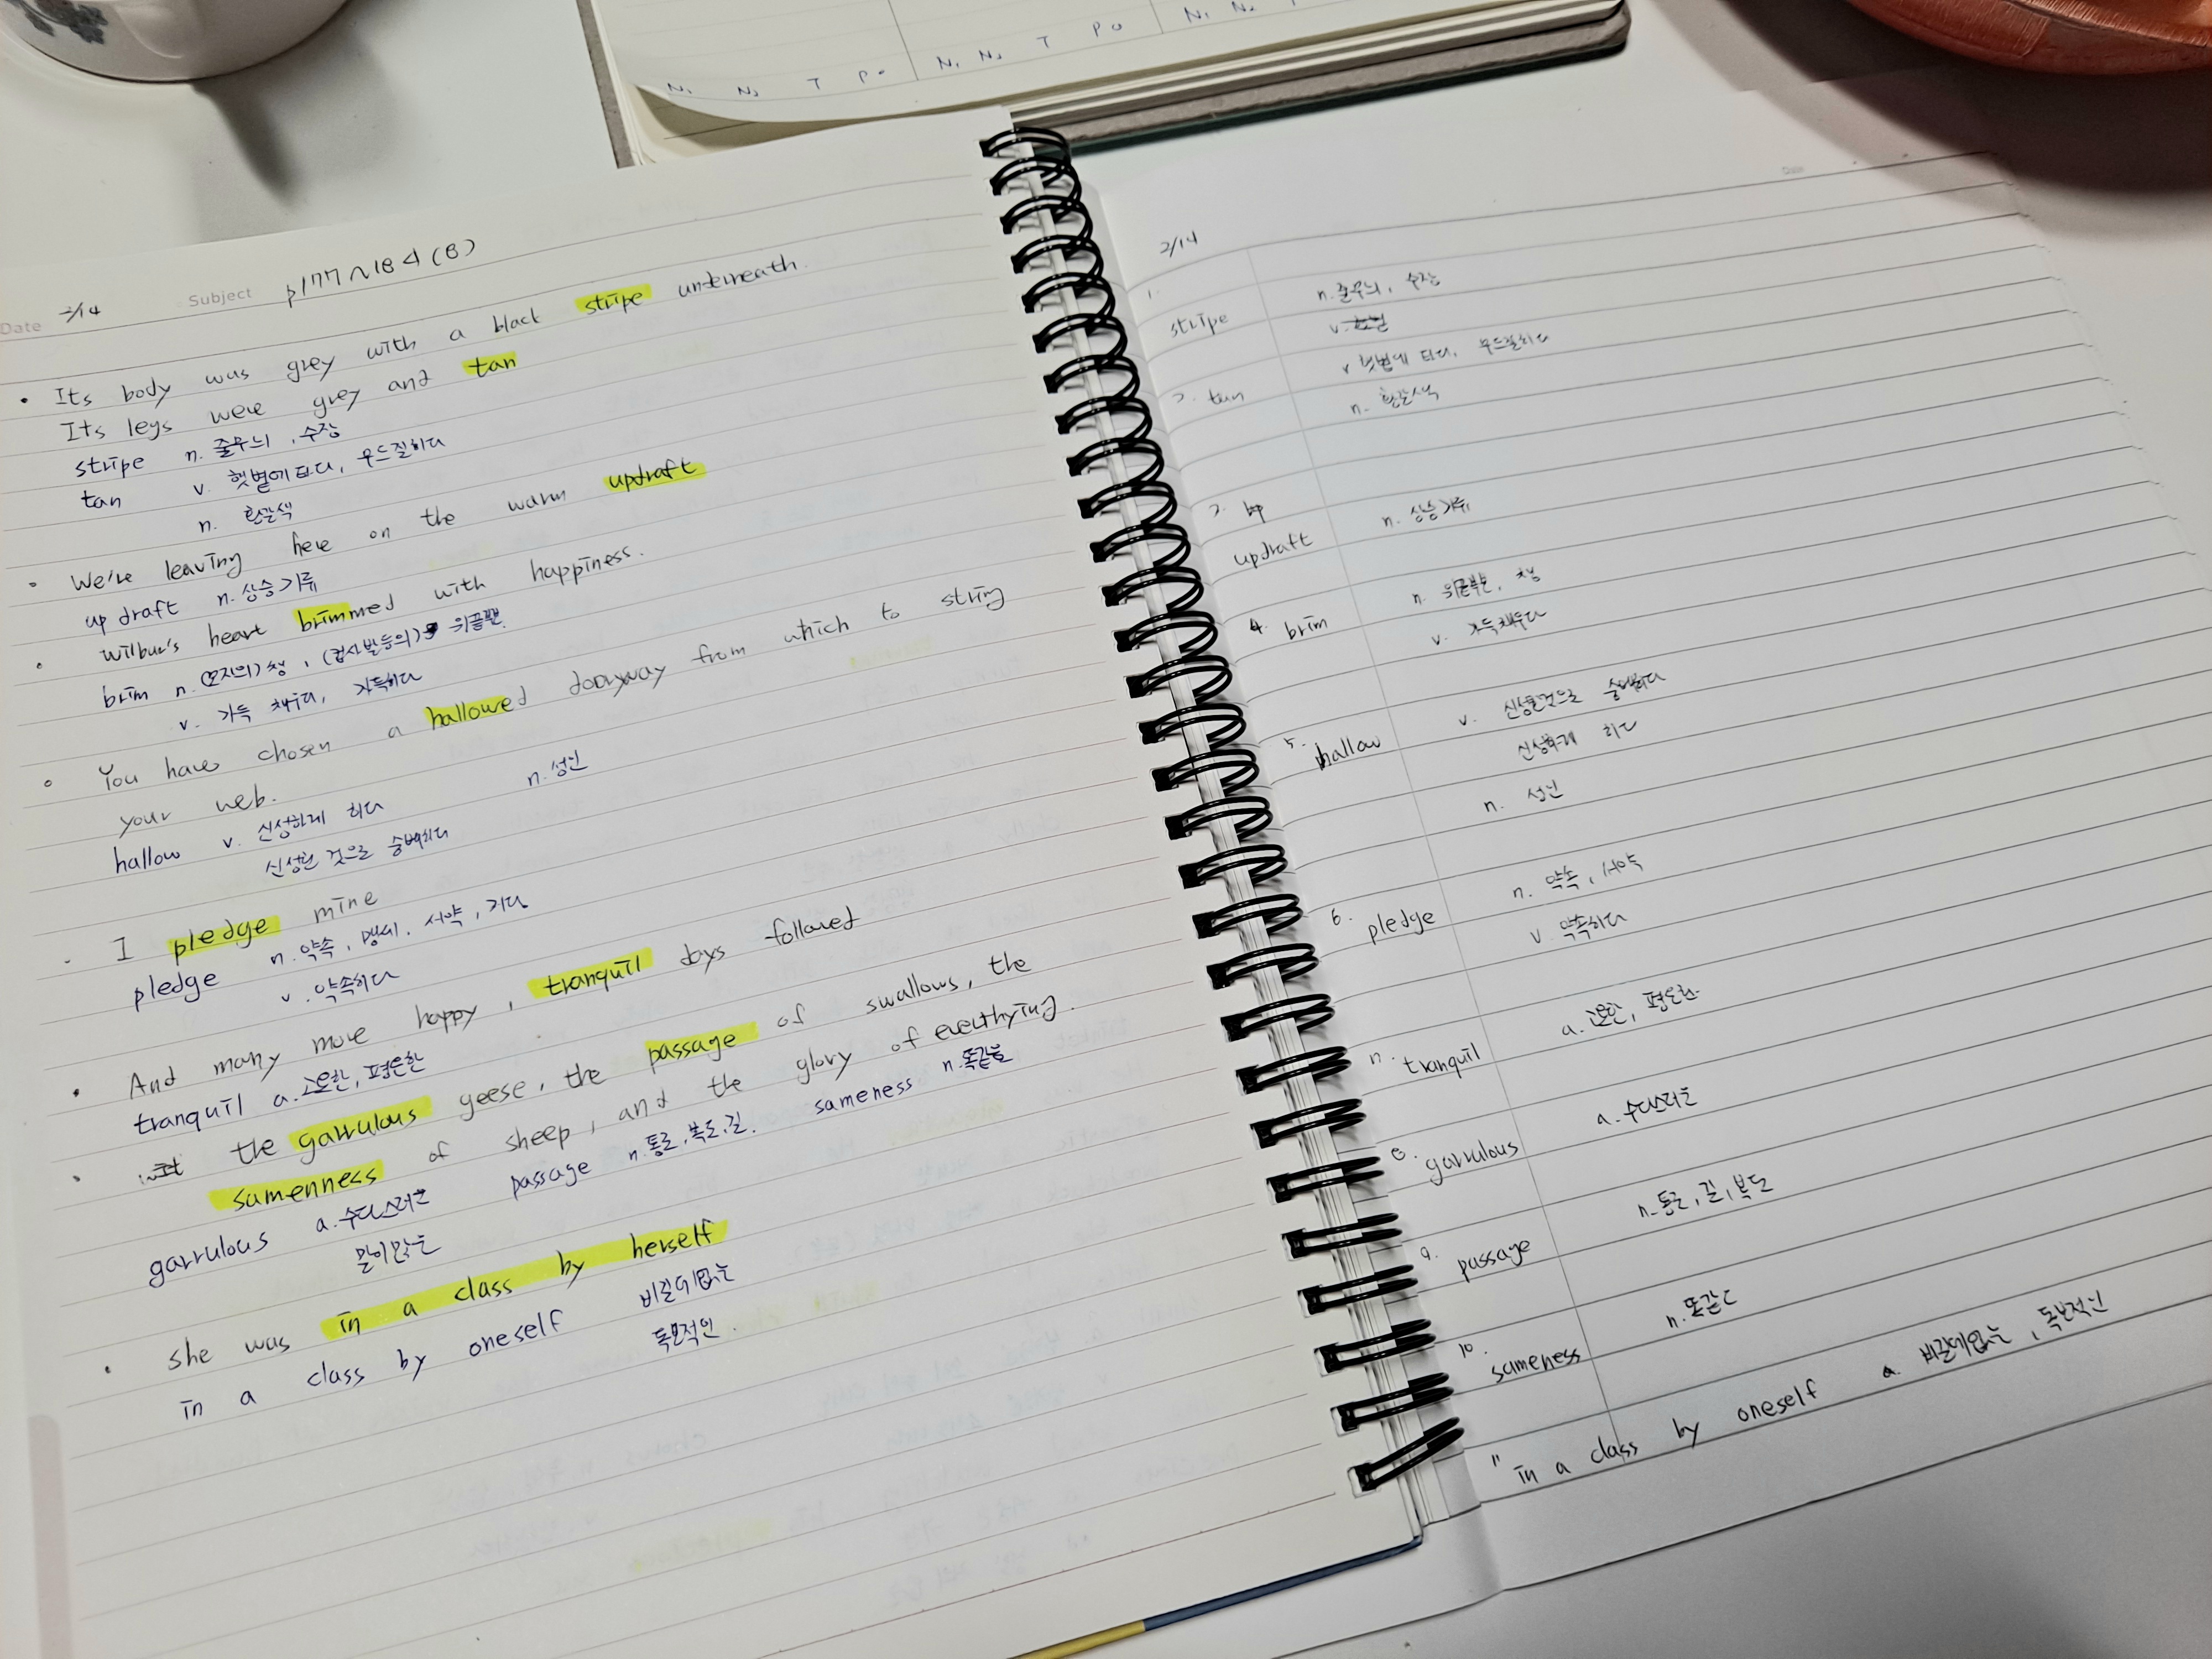 N₁ N₂ T Po N₁ N₂ T Po N₁ N₂ T
Date 2/14 Subject p177~184(8)
• Its body was grey with a black stripe underneath.
Its legs were grey and tan
stripe n. 줄무늬, 수장
tan v. 햇볕에 타다, 무드질하다
n. 황갈색
• We're leaving here on the warm updraft
up draft n. 상승기류
• Wilbur's heart brimmed with happiness.
brim n. (모자의) 챙, (접시 발등의) 위끝
v. 가득 채우다, 가득하다
• You have chosen a hallowed doorway from which to string
your web.
hallow v. 신성하게 하다 n. 성인
신성한 것으로 숭배하다
• I pledge mine
pledge n. 약속, 맹세, 서약,
v. 약속하다
• And many more happy, tranquil days followed
tranquil a. 고요한, 평온한
• the garrulous geese, the passage of swallows, the
samenness of sheep, and the glory of everthying.
garrulous a. 수다스러운 passage n. 통로, 복도, 길. sameness n. 똑같음
말이많은
• She was in a class by herself
in a class by oneself 비길데없는
독보적인.
Date
2/14
1. stripe n. 줄무늬, 수장
v.
2. tan v 햇볕에 타다, 무드질하다
n. 황갈색
3. up
updraft n. 상승기류
4. brim n. 위끝부분, 챙
v. 가득채우다
5. hallow v. 신성한것으로 숭배하다
신성하게 하다
n. 성인
6. pledge n. 약속, 서약
v. 약속하다
7. tranquil a. 고요한, 평온한
8. garrulous a. 수다스러운
9. passage n. 통로, 길, 복도
10. sameness n. 똑같은
11 in a class by oneself a. 비길데없는, 독보적인